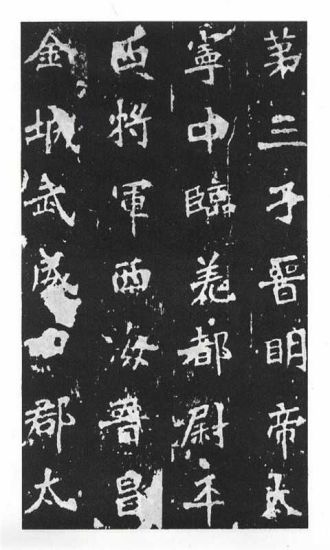 第三子晉明帝太
寧中臨羌都尉平
西將軍西海晉昌
金城武威四郡太